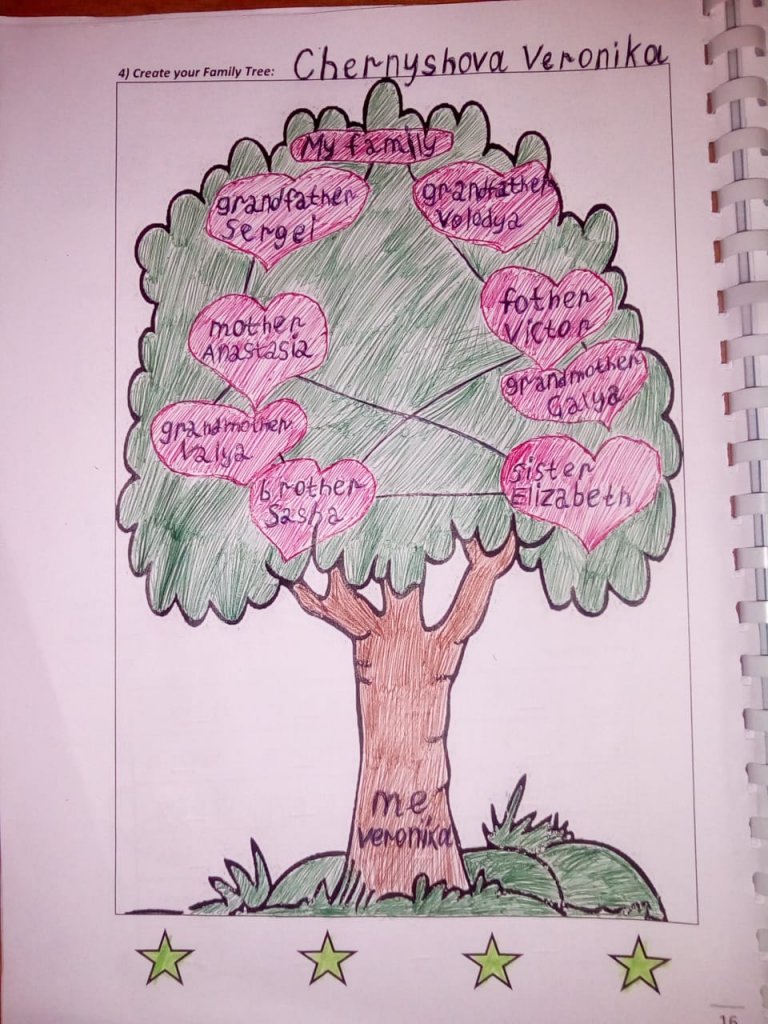 4) Create your Family Tree: Chernyshova Veronika
My family
grandfather
Sergei
grandfather
Volodya
mother
Anastasia
fother
Victor
grandmother
Valya
grandmother
Galya
brother
Sasha
sister
Elizabeth
me
veronika
16